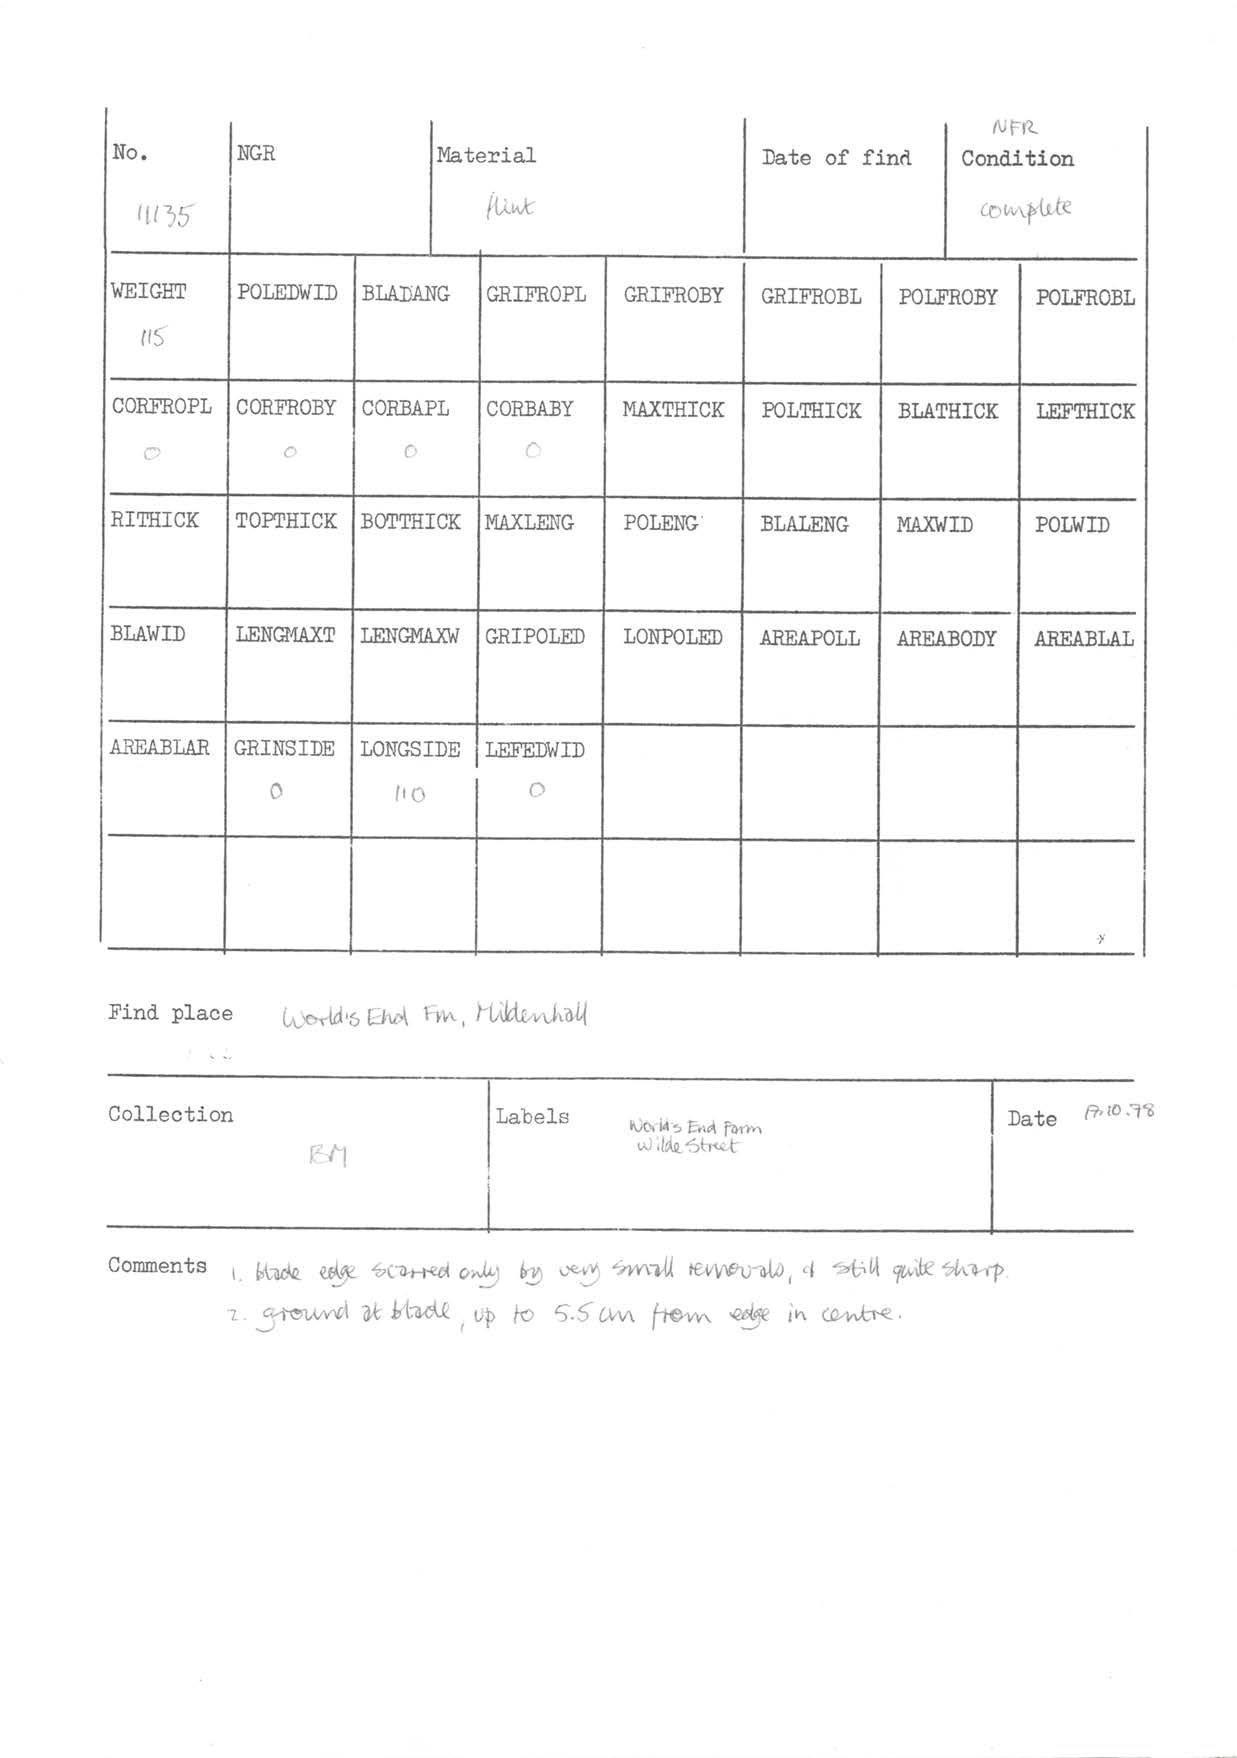 NFR
No. NGR Material Date of find Condition
11135 flint complete
WEIGHT POLEDWID BLADANG GRIFROPL GRIFROBY GRIFROBL POLFROBY POLFROBL
115
CORFROPL CORFROBY CORBAPL CORBABY MAXTHICK POLTHICK BLATHICK LEFTHICK
0 0 0 0
RITHICK TOPTHICK BOTTHICK MAXLENG POLENG BLALENG MAXWID POLWID
BLAWID LENGMAXT LENGMAXW GRIPOLED LONPOLED AREAPOLL AREABODY AREABLAL
AREABLAR GRINSIDE LONGSIDE LEFEDWID
0 110 0
Find place World's End Fm, Mildenhall
Collection Labels Date 17.10.78
BM World's End Farm
Wilde Street
Comments 1. blade edge scarred only by very small removals, & still quite sharp.
2. ground at blade, up to 5.5 cm from edge in centre.